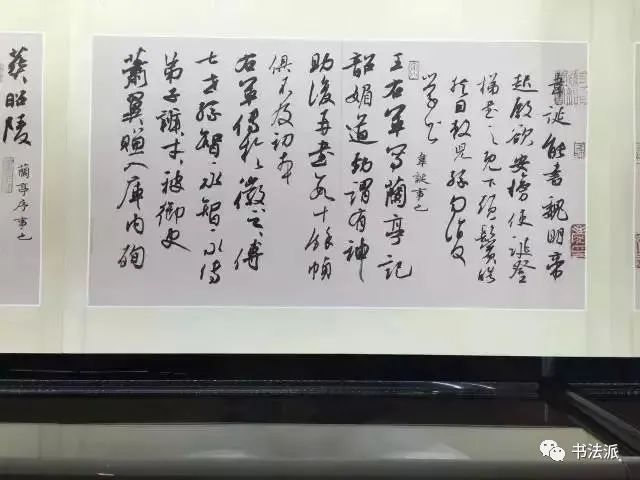 韋誕能書魏明帝
起殿欲安榜使誕登
梯書之既下須鬢皓
然因敕兒孫勿復
學書
韋誕事也
王右軍寫蘭亭記
韶媚遒勁謂有神
助後再書數十餘幀
俱不及初本
右軍傳於徽之傳
七世孫智永智永傳
弟子辯才被御史
蕭翼賺入庫内殉
葬昭陵
蘭亭序事也
书法派